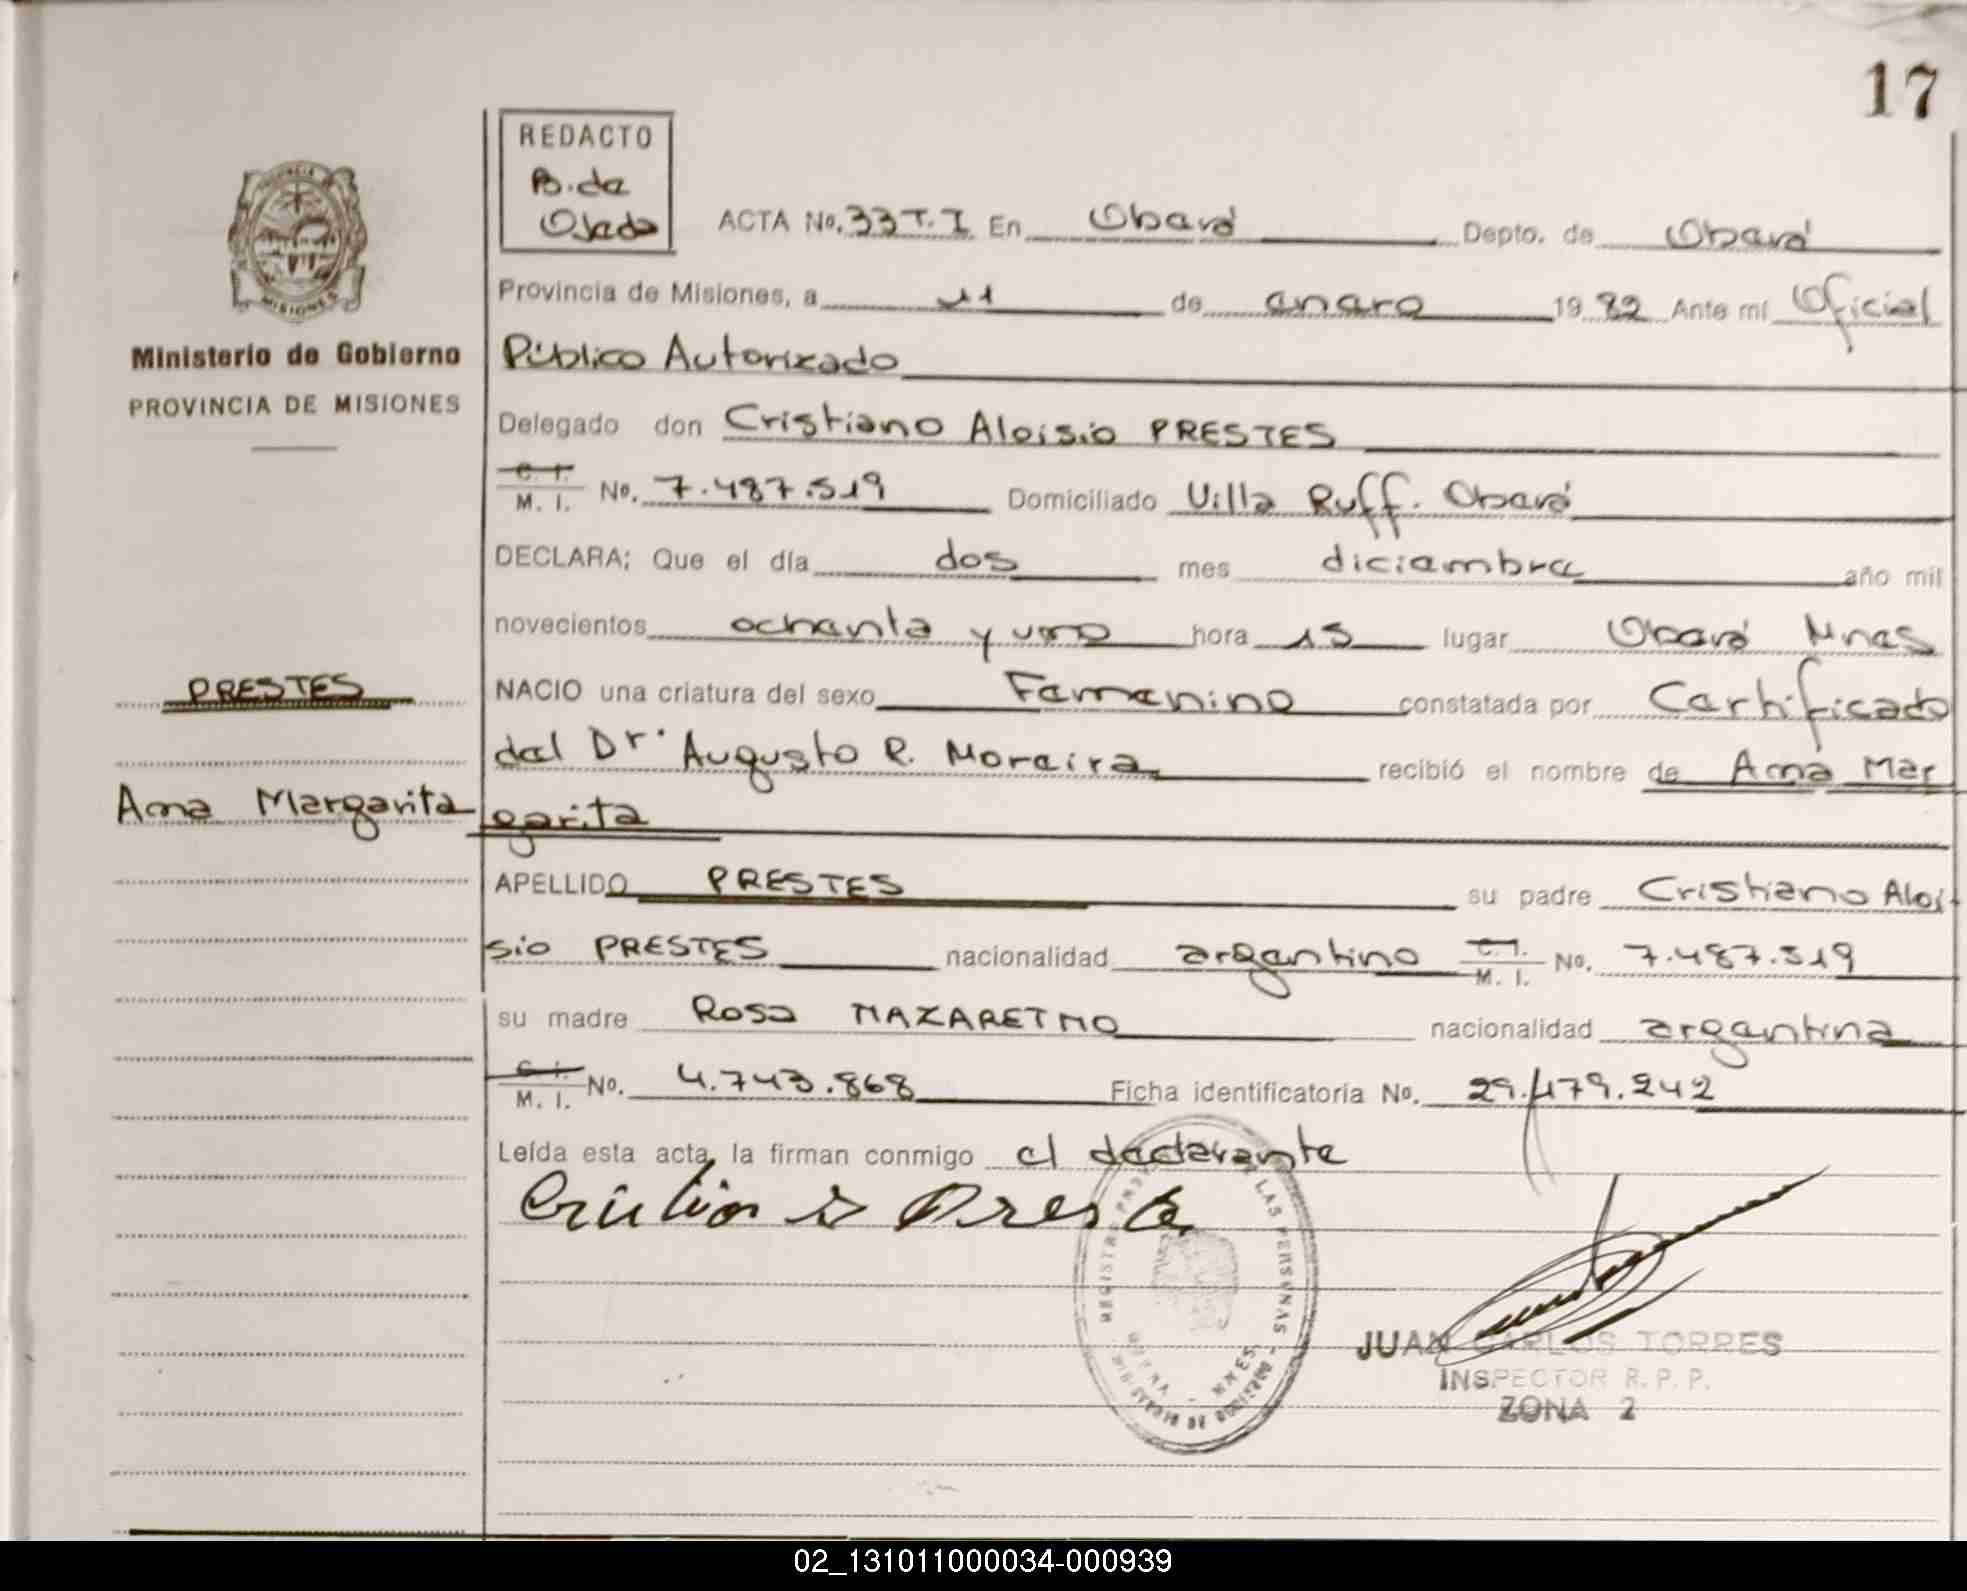 17
REDACTO
B. de
Ojeda
ACTA No. 33 T. I En Oberá Depto. de Oberá
Provincia de Misiones, a 11 de enero 1982 Ante mí Oficial
Ministerio de Gobierno
PROVINCIA DE MISIONES
Público Autorizado
Delegado don Cristiano Aloisio PRESTES
C. I.
M. I. No. 7.487.519 Domiciliado Villa Ruff. Oberá
DECLARA; Que el día dos mes diciembre año mil
novecientos ochenta y uno hora 15 lugar Oberá Mnes
PRESTES
NACIO una criatura del sexo Femenino constatada por Certificado
del Dr. Augusto R. Moreira recibió el nombre de Ana Mar
Ana Margarita
garita
APELLIDO PRESTES su padre Cristiano Aloi
sio PRESTES nacionalidad argentino C. I. M. I. No. 7.487.519
su madre Rosa NAZARETNO nacionalidad argentina
C. I.
M. I. No. 4.743.868 Ficha identificatoria No. 29.179.242
Leída esta acta, la firman conmigo el declarante
REGISTRO LAS PERSONAS
MNES.
MINISTERIO DE GOBIERNO
JUAN CARLOS TORRES
INSPECTOR R. P. P.
ZONA 2
02_131011000034-000939